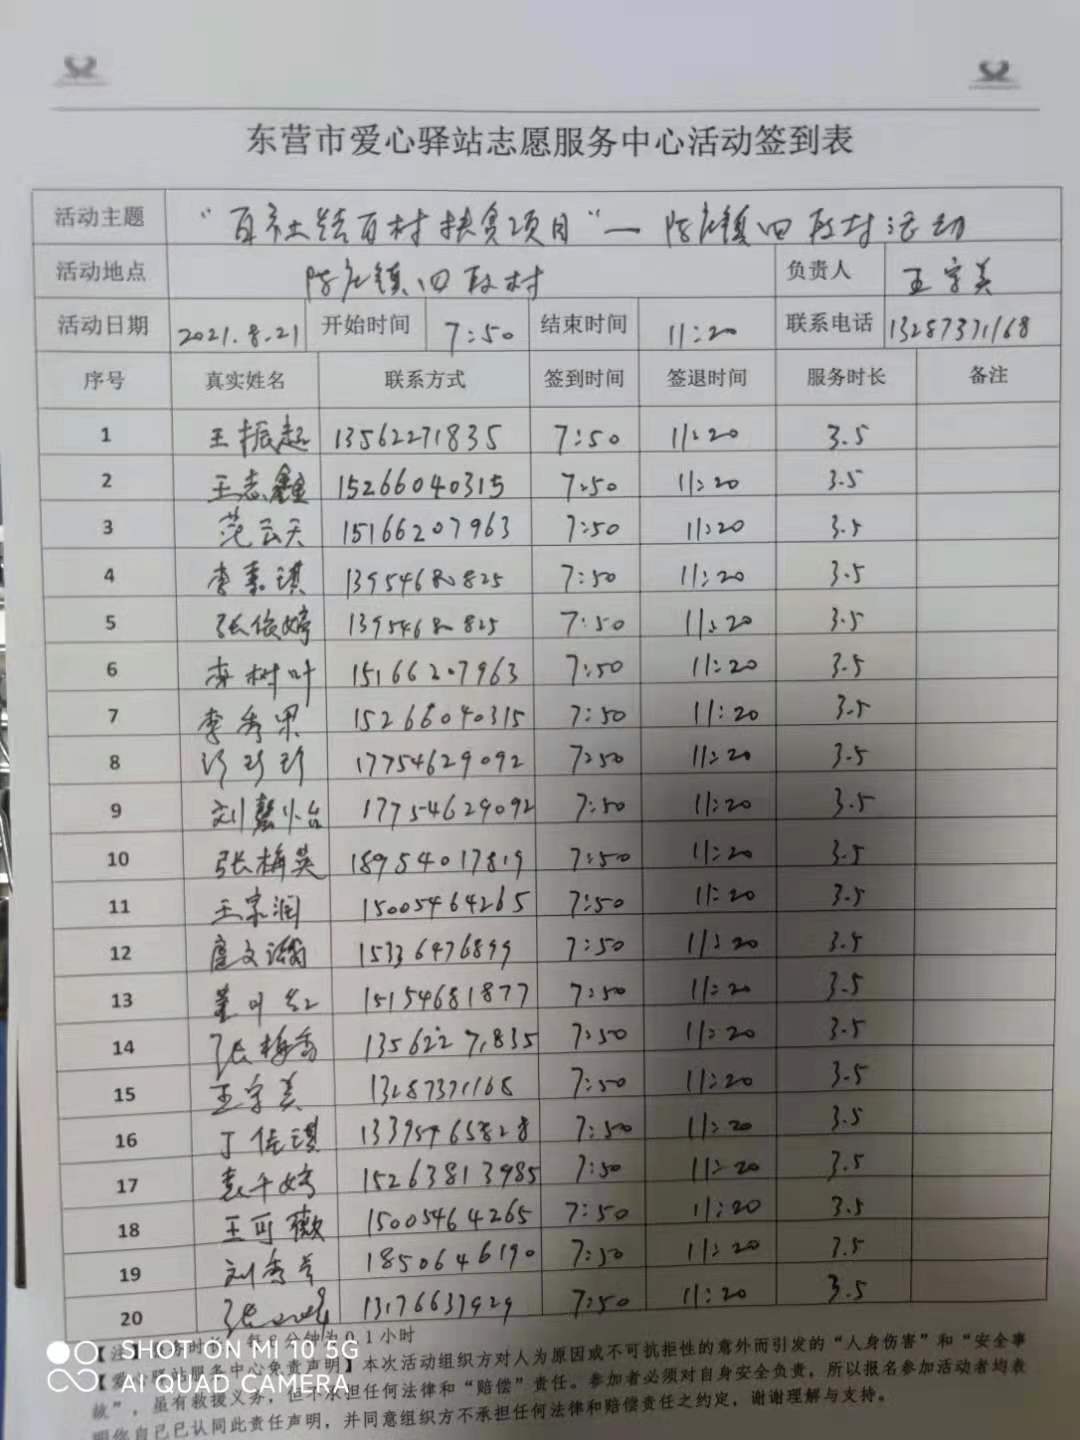 东营市爱心驿站志愿服务中心活动签到表
活动主题 “百社结百村扶贫项目”— 陈庄镇四段村活动
活动地点 陈庄镇四段村 负责人 王字美
活动日期 2021.8.21 开始时间 7:50 结束时间 11:20 联系电话 13287371168
序号 真实姓名 联系方式 签到时间 签退时间 服务时长 备注
1 王振起 13562271835 7:50 11:20 3.5
2 王志鑫 15266040315 7:50 11:20 3.5
3 范云天 15166207963 7:50 11:20 3.5
4 李素琪 13954680825 7:50 11:20 3.5
5 张俊婷 13954680825 7:50 11:20 3.5
6 李树叶 15166207963 7:50 11:20 3.5
7 李秀果 15266040315 7:50 11:20 3.5
8 许珍珍 17754629092 7:50 11:20 3.5
9 刘慧怡 17754629092 7:50 11:20 3.5
10 张梅英 18954017819 7:50 11:20 3.5
11 王宗润 15005464265 7:50 11:20 3.5
12 文 15336476899 7:50 11:20 3.5
13 叶红 15154681877 7:50 11:20 3.5
14 张梅香 13562271835 7:50 11:20 3.5
15 王字美 13287371168 7:50 11:20 3.5
16 丁佳琪 13395465828 7:50 11:20 3.5
17 袁千婷 15263813985 7:50 11:20 3.5
18 王可薇 15005464265 7:50 11:20 3.5
19 刘秀兰 1850646190 7:50 11:20 3.5
20 张 13176637929 7:50 11:20 3.5
【注 时长 每 分钟为0.1小时
【爱心驿站服务中心免责声明】本次活动组织方对人为原因或不可抗拒性的意外而引发的“人身伤害”和“安全事
故”，虽有救援义务，但不承担任何法律和“赔偿”责任。参加者必须对自身安全负责，所以报名参加活动者均表
明你自己已认同此责任声明，并同意组织方不承担任何法律和赔偿责任之约定，谢谢理解与支持。
SHOT ON MI 10 5G
AI QUAD CAMERA